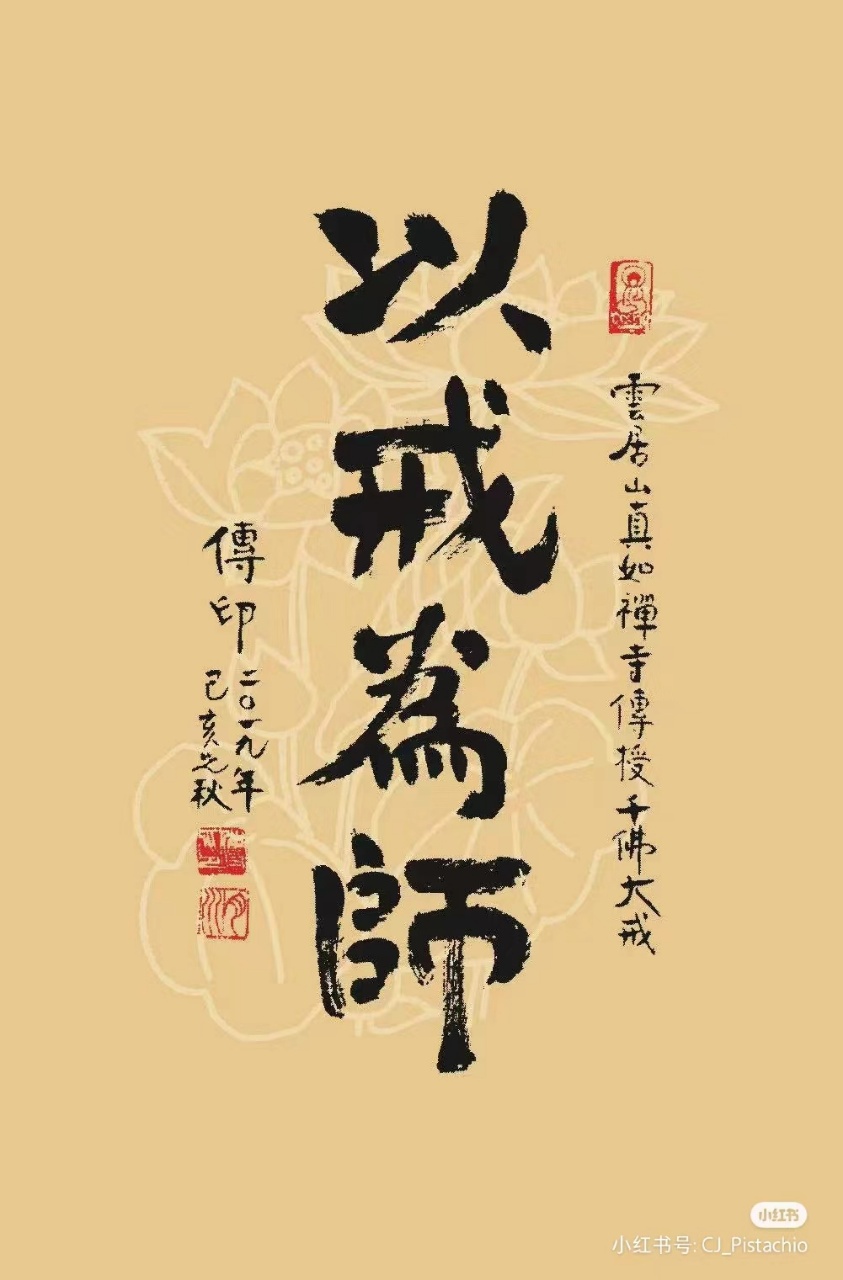 雲居山真如禪寺傳授千佛大戒
以戒為師
傳印
二〇一九年
己亥之秋
小红书
小红书号: CJ_Pistachio